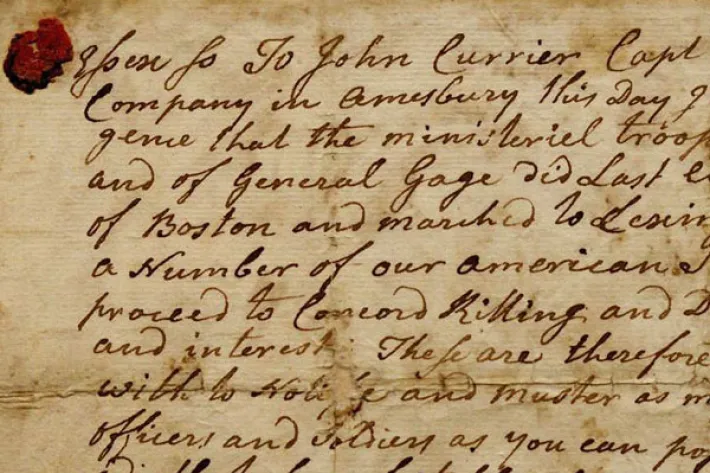 Essex ss To John Currier Capt
Company in Amesbury this Day
gence that the ministeriel troop
and of General Gage did Last
of Boston and marched to Lexing
a Number of our american
proceed to Concord Killing and D
and interest: These are therefore
with to Notife and muster as m
officers and Soldiers as you can po